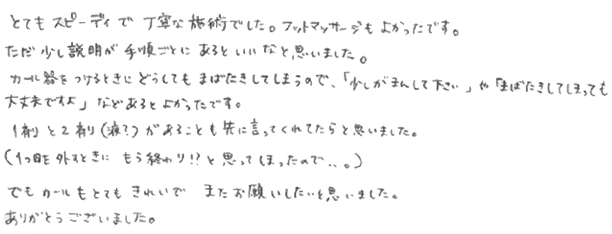 とてもスピーディで丁寧な施術でした。フットマッサージもよかったです。
ただ少し説明が手順ごとにあるといいなと思いました。
カール器をつけるときにどうしてもまばたきしてしまうので、「少しがまんして下さい」や「まばたきしてしまっても
大丈夫ですよ」などあるとよかったです。
1剤と2剤(液?)があることも先に言ってくれてたらと思いました。
(1つ目を外すときにもう終わり!?と思ってしまったので...。)
でもカールもとてもきれいでまたお願いしたいと思いました。
ありがとうございました。